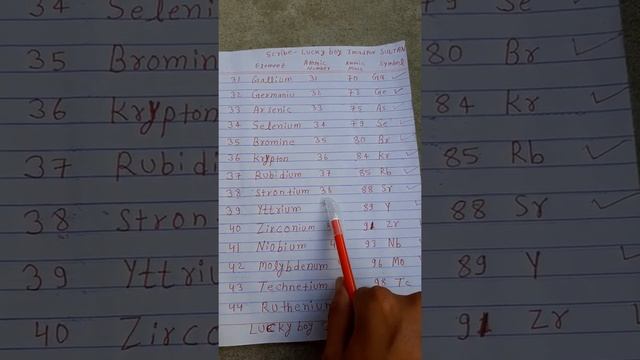 34 Seleni
35 Bromin
36 Krypton
37 Rubidi
38 Stront
39 Yttri
40 Zirc
Scribe- Lucky boy SULTAN
Element Atomic Number Atomic Mass Symbol
31 Gallium 31 70 Ga ✓
32 Germaniu 32 73 Ge ✓
33 Arsenic 33 75 As ✓
34 Selenium 34 79 Se ✓
35 Bromine 35 80 Br ✓
36 Krypton 36 84 Kr ✓
37 Rubidium 37 85 Rb
38 Strontium 38 88 Sr ✓
39 Yttrium 89 Y ✓
40 Zirconium 91 Zr
41 Niobium 4 93 Nb
42 Molybdenum 96 Mo
43 Technetium 98 Tc
44 Ruthenium
Lucky boy
79 Se
80 Br
84 Kr
85 Rb
88 Sr
89 Y
91 Zr